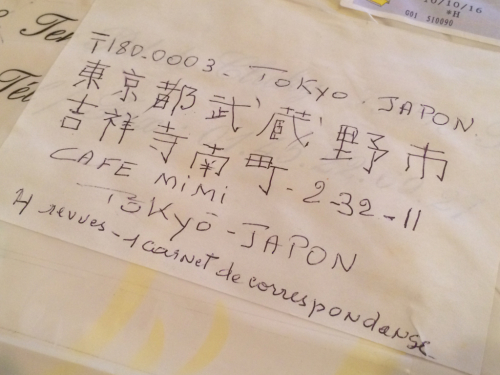 10/10/16
*H
G01 510090
Te
Té
〒180.0003. TOKYO. JAPON.
東京都武蔵野市
吉祥寺南町-2-32-11
CAFE MiMi
TOKYO-JAPON
4 revues - 1 carnet de correspondanse